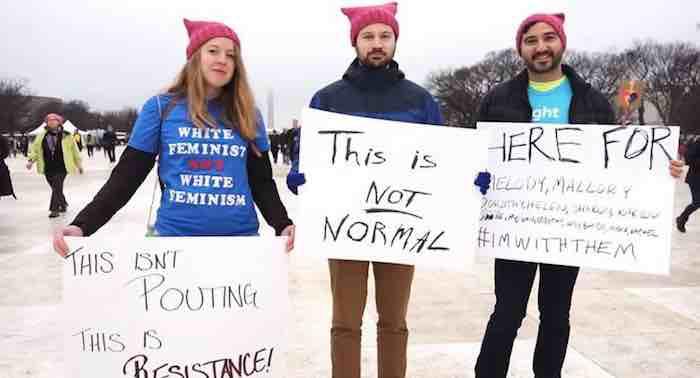 WHITE
FEMINIST
NOT
WHITE
FEMINISM
THIS ISN'T
POUTING
THIS IS
RESISTANCE!
This is
NOT
NORMAL
ght
HERE FOR
MELODY, MALLORY
DOROTHY, HELEN, SHARON,
#IMWITHTHEM